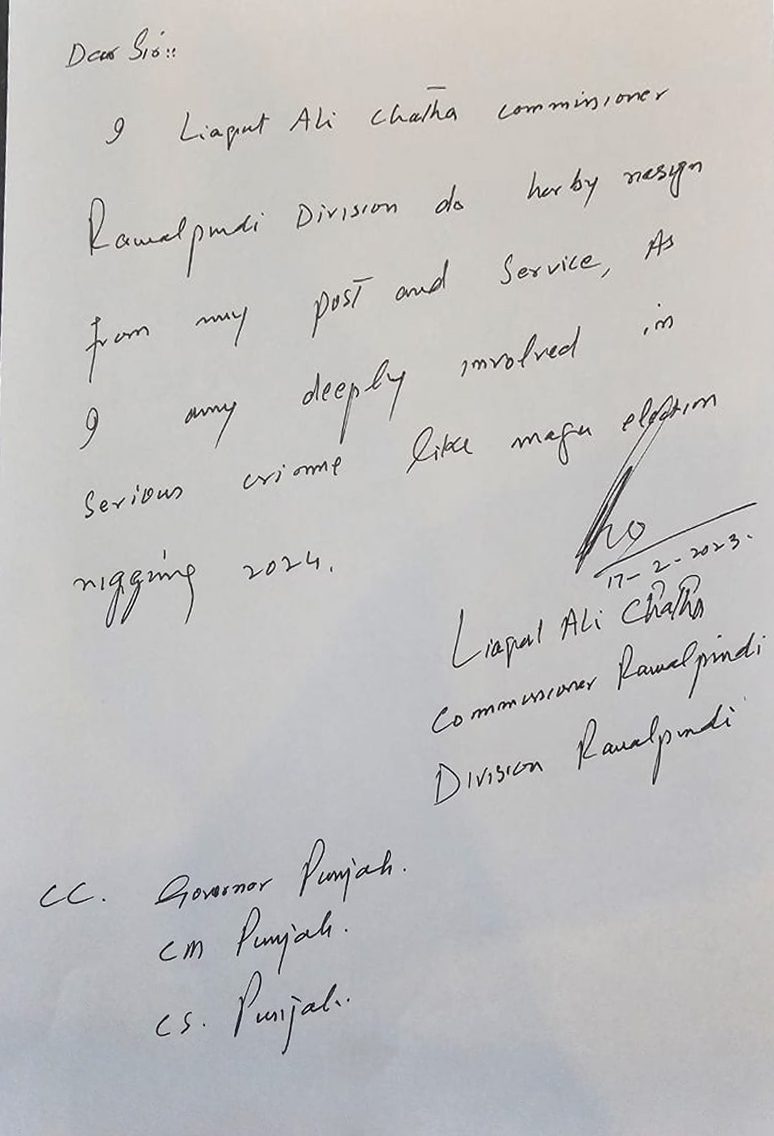 Dear Sir::
I Liaqut Ali Chatha commissioner
Rawalpindi Division do herby resign
from my post and Service, As
I amy deeply involved in
Serious crime like mega election
rigging 2024.
17-2-2023.
Liaqat Ali Chatha
Commissioner Rawalpindi
Division Rawalpindi
CC. Governor Punjab.
CM Punjab.
CS. Punjab.